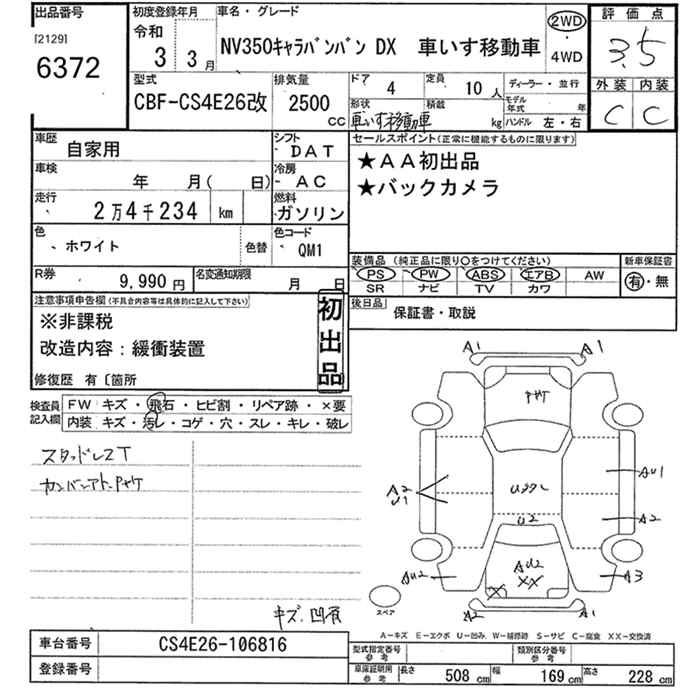 出品番号 初度登録年月 車名・グレード 評価点
[2129] 令和 2WD
6372 3 3月 NV350キャラバンバン DX 車いす移動車 4WD 3.5
型式 排気量 ドア 4 定員 10人 ディーラー・並行 外装 内装
CBF-CS4E26改 2500cc 形状 車いす移動車 積載 kg モデル年式 年 ハンドル 左・右 C C
車歴 自家用 シフト DAT セールスポイント(正常に機能するものに限ります)
車検 年 月( 日) 冷房 AC ★AA初出品
走行 2万4千234 km 燃料 ガソリン ★バックカメラ
色 ホワイト 色替 色コード QM1
装備品(純正品に限り○をつけてください) 新車保証書
R券 9,990円 名変通知期限 月 日 PS PW ABS エアB AW 有・無
SR ナビ TV カワ
注意事項申告欄(不具合内容等は具体的に記入して下さい) 初出品 後日品 保証書・取説
※非課税
改造内容:緩衝装置
修復歴 有〔箇所
検査員記入欄 FW キズ・飛石・ヒビ割・リペア跡・×要
内装 キズ・汚レ・コゲ・穴・スレ・キレ・破レ
A1 A1
スタッドレスT
カンバンアト、
AU1
A2 U1
U2
A2
AU2 AU2 XX A3
キズ、凹有 スペア A2 A1
A-キズ E-エクボ U-凹み W-補修跡 S-サビ C-腐食 XX-交換済
車台番号 CS4E26-106816 型式指定番号 参考 類別区分番号 参考
登録番号 車庫証明用 参考 長さ 508cm 幅 169cm 高さ 228cm